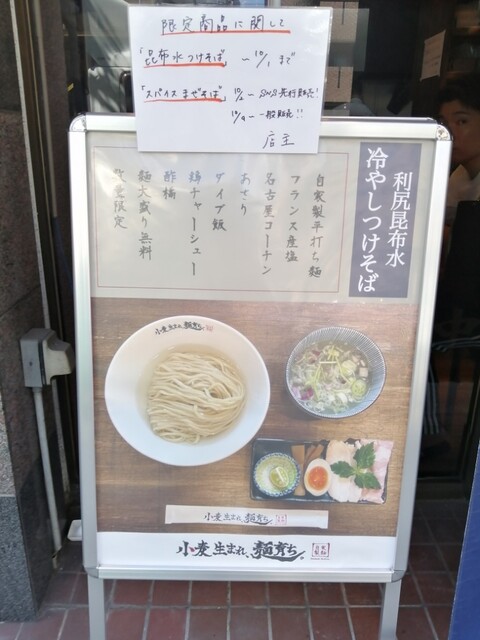 限定商品に関して
「昆布水つけそば」〜10/1まで
「スパイスまぜそば」10/2〜SNS先行販売!
10/9〜一般販売!!
店主
利尻昆布水
冷やしつけそば
自家製平打ち麺
フランス産塩
名古屋コーチン
あさり
ダイブ飯
鶏チャーシュー
酢橘
麺大盛り無料
数量限定
小麦生まれ、麺育ち
小麦生まれ、麺育ち
小麦生まれ、麺育ち。